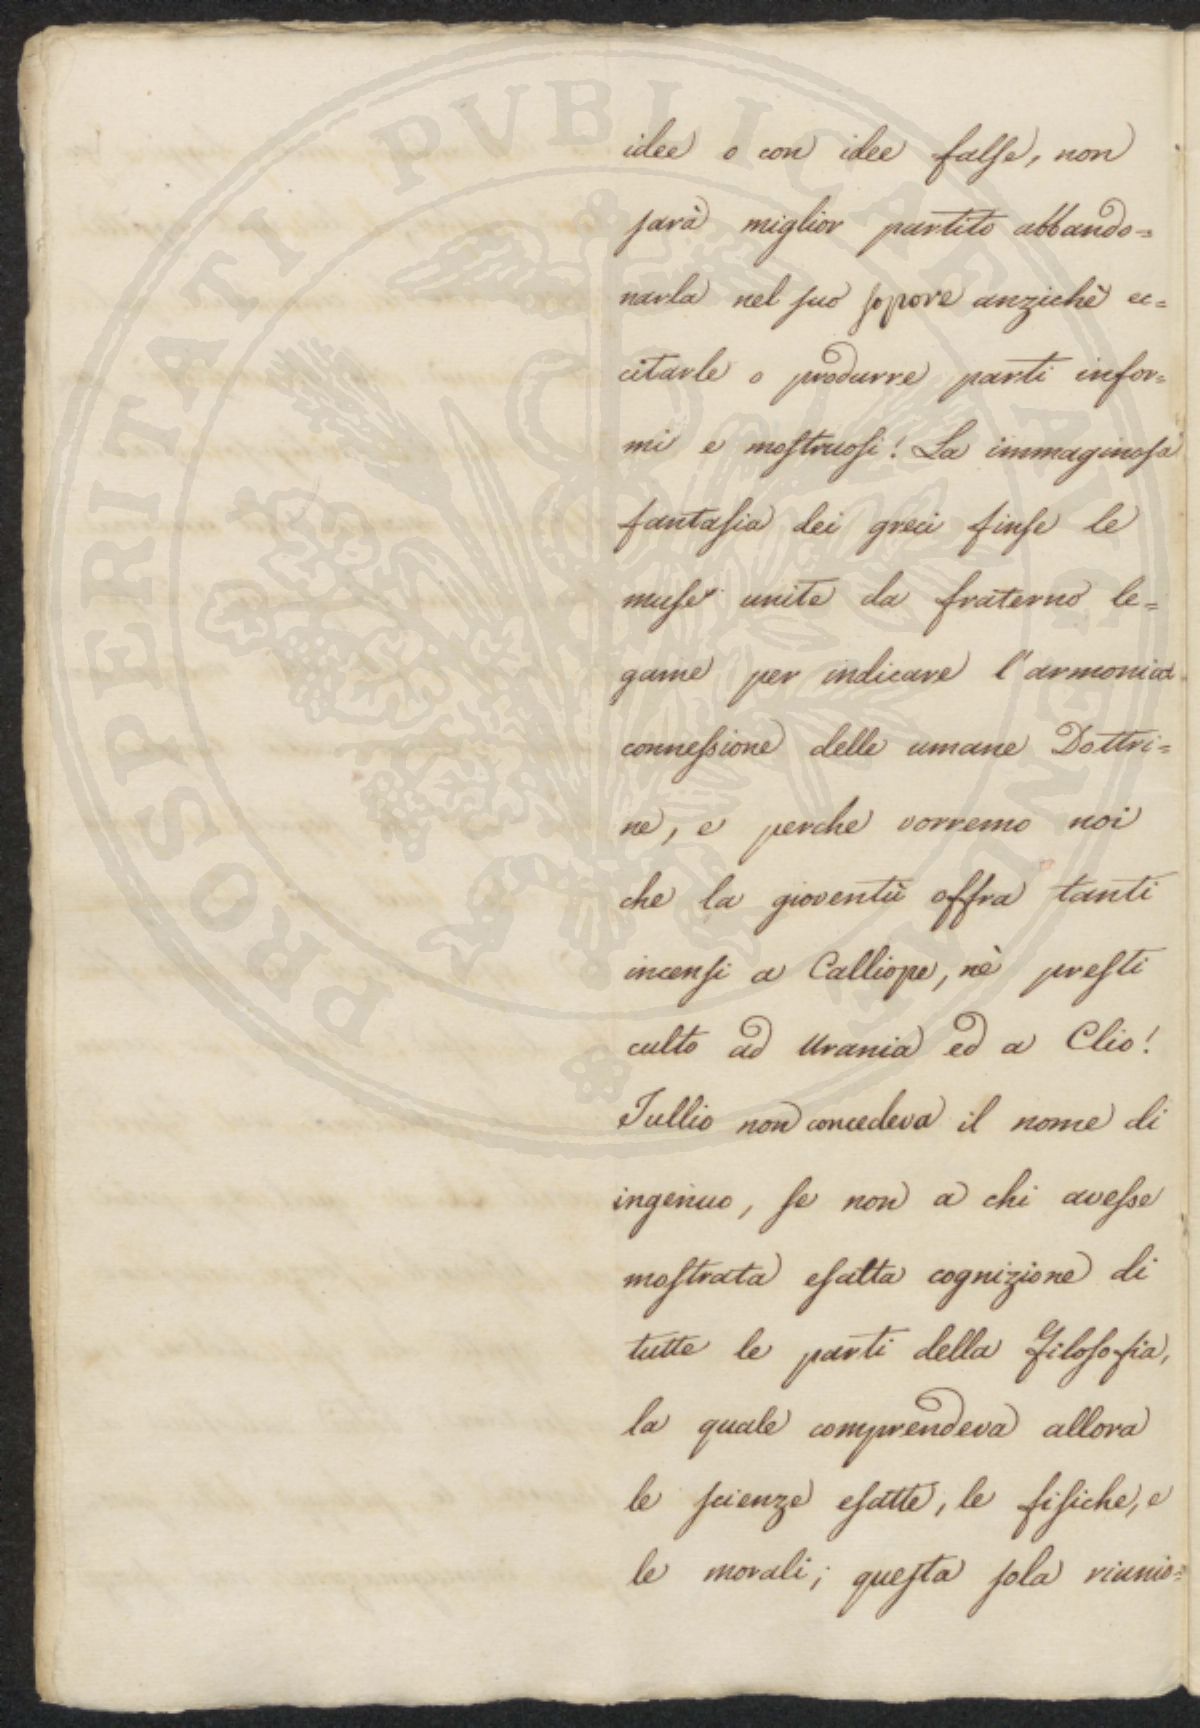 idee o con idee false, non
sarà miglior partito abbando=
narla nel suo sopore anzichè ec=
citarle o produrre parti infor=
mi e mostruosi! La immaginosa
fantasia dei greci finse le
muse unite da fraterno le=
game per indicare l'armonica
connessione delle umane Dottri=
ne, e perche vorremo noi
che la gioventù offra tanti
incensi a Calliope, nè presti
culto ad Urania ed a Clio!
Tullio non concedeva il nome di
ingenuo, se non a chi avesse
mostrata esatta cognizione di
tutte le parti della Filosofia,
la quale comprendeva allora
le scienze esatte, le fisiche, e
le morali; questa sola riunio=
PROSPERITATI PVBLICAE AVGENDAE